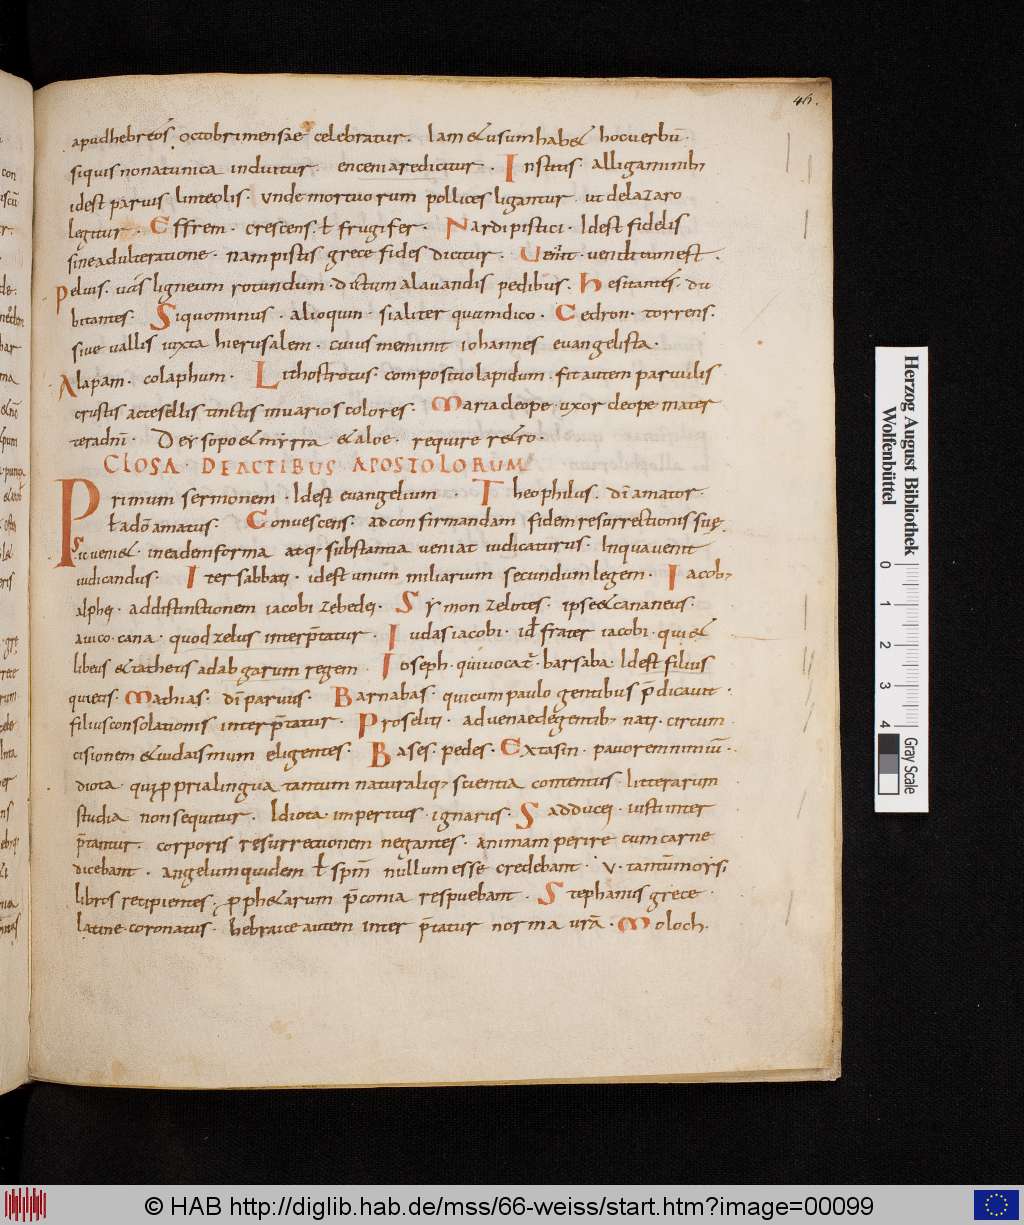 46.
apudhebreos octobrimensae celebratur. Iam & usum hab& hocuerbū
siquis nonatunica induitur. encenia redicitur. Institis. alligaminib;
idest paruis linteolis. Unde mortuorum pollices ligantur ut delazaro
legitur. Effrem. crescens. ł frugifer. Nardi pistici. Idest fidelis
sine adulteratione. nam pistis grece fides dicitur.
Peluis. uas ligneum rotundum. dictum a lauandis pedibus. Hesitantes. du
bitantes. Siquominus. alioquin. si aliter quam dico. Cedron. torrens.
siue uallis iuxta hierusalem. cuius meminit iohannes euangelista.
Alapam. colaphum. Lithostrotus. compositio lapidum. fit autem paruulis
crustis ac tesellis tinctis in uarios colores. Maria cleope. uxor cleope mater
De ysopo & myrra & aloe. require r&ro.
GLOSA. DE ACTIBUS APOSTOLORUM
Primum sermonem. Idest euangelium. Theophilus. dī amator.
ł adō amatus. Conuescens. ad confirmandam fidem resurrectionis suę.
Sic ueni&. in eadem forma atq; substantia ueniat iudicaturus. In qua uenit
iudicandus. Iter sabbati. idest unum miliarium secundum legem. Iacob;
alphei. ad distinctionem iacobi zebedei. Symon zelotes. ipse & cananeus.
a uico. cana. quod zelus interp̄tatur. Iudas iacobi. id frater iacobi. qui &
libeus & tatheus ad abgarum regem. Ioseph. qui uocat̄. barsaba. Idest filius
quietis. Mathias. dī paruus. Barnabas. qui cum paulo gentibus p̄dicauit.
filius consolationis interp̄tatur. Proseliti. aduenae de gentib; nati. circum
cisionem & iudaismum eligentes. Bases. pedes. Extasin. pauorem nimiū.
diota. qui ꝓpria lingua tantum naturaliq; scientia contentus. litterarum
studia non sequitur. Idiota imperitus. ignarus. Sadducei. iusti inter
p̄tantur. corporis resurrectionem negantes. animam perire cum carne
dicebant. angelum quidem ł sp̄m nullum esse credebant. V. tantū morsi
libros recipientes. ꝓph&arum p̄conia respuebant. Stephanus grece
latine coronatus. hebraice autem interp̄tatur norma urā. Moloch.
Herzog August Bibliothek
Wolfenbüttel
0 1 2 3 4
Gray Scale
© HAB http://diglib.hab.de/mss/66-weiss/start.htm?image=00099